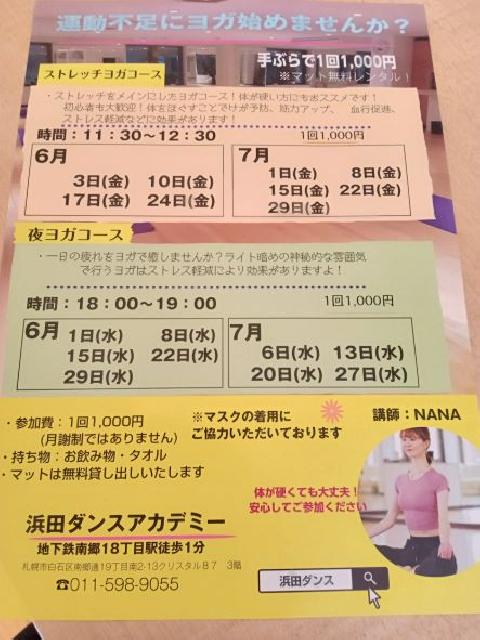 運動不足にヨガ始めませんか？
手ぶらで1回1,000円
※マット無料レンタル！
ストレッチヨガコース
・ストレッチをメインにしたヨガコース！体が硬い方にもおススメです！
初心者も大歓迎！体をほぐすことでけが予防、筋力アップ、　血行促進、
ストレス軽減などに効果があります！
時間：11：30～12：30
1回1,000円
6月
3日(金)　10日(金)
17日(金)　24日(金)
7月
1日(金)　8日(金)
15日(金)　22日(金)
29日(金)
夜ヨガコース
・一日の疲れをヨガで癒しませんか？ライト暗めの神秘的な雰囲気
で行うヨガはストレス軽減により効果がありますよ！
時間：18：00～19：00
1回1,000円
6月
1日(水)　8日(水)
15日(水)　22日(水)
29日(水)
7月
6日(水)　13日(水)
20日(水)　27日(水)
・参加費：1回1,000円
(月謝制ではありません)
・持ち物：お飲み物・タオル
・マットは無料貸し出しいたします
※マスクの着用に
ご協力いただいております
講師：NANA
体が硬くても大丈夫！
安心してご参加ください
浜田ダンスアカデミー
地下鉄南郷18丁目駅徒歩1分
札幌市白石区南郷通19丁目南2-13クリスタル87　3階
☎011-598-9055
浜田ダンス